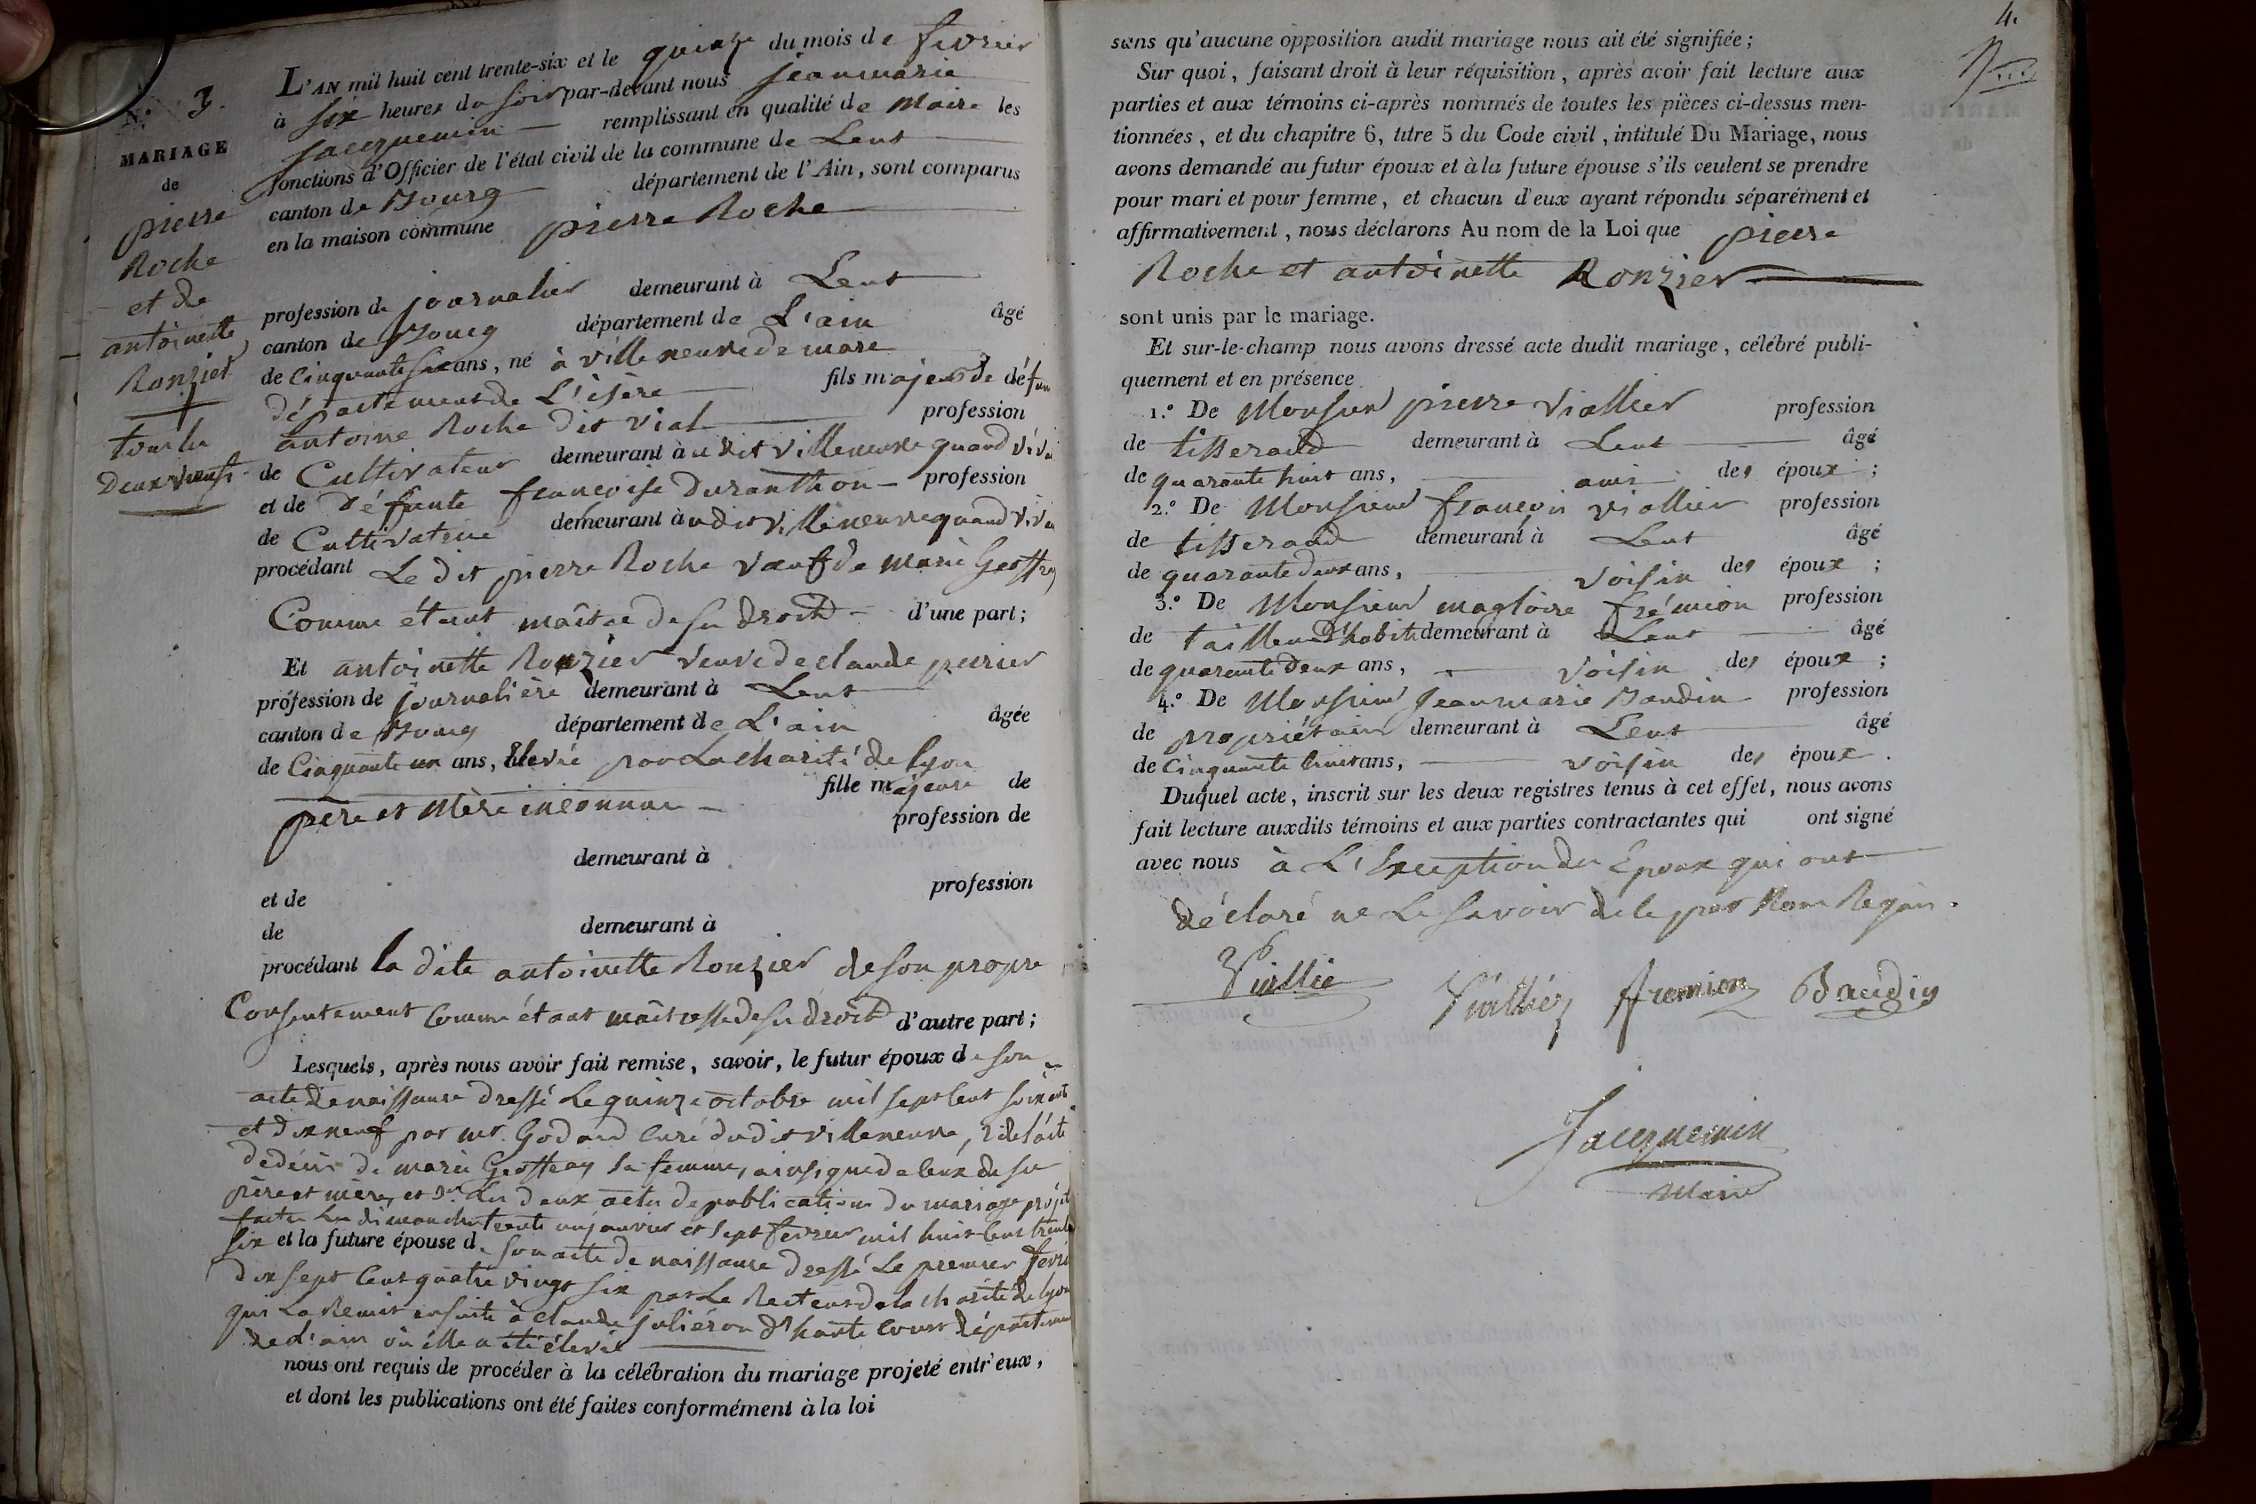 N.º 3.
MARIAGE
de
pierre
Roche
et de
antoinette
Ronzier
tous les
deux veufs
L'AN mil huit cent trente-six et le quinze du mois de fevrier
à six heures du soir par-devant nous jeanmarie
jacquemin remplissant en qualité de Maire les
fonctions d'Officier de l'état civil de la commune de Lent
canton de Bourg département de l'Ain, sont comparus
en la maison commune pierre Roche
profession de journalier demeurant à Lent
canton de Bourg département de L'ain âgé
de Cinquante six ans, né à villeneuve de marc
département de L'isère fils majeur de défun
antoine Roche dit vial profession
de Cultivateur demeurant àudit villeneuve quand viva
et de défunte françoise Duranthon profession
de Cultivatrice demeurant àudit villeneuve quand viva
procédant Le dit pierre Roche vœuf de marie Geoffray
Comme étant maître de ses droits d'une part;
Et antoinette Ronzier veuve de claude perrier
profession de journalière demeurant à Lent
canton de Bourg département de L'ain âgée
de Cinquante un ans, élevée par La charité de lyon
fille majeure de
père et mère inconnus profession de
demeurant à
et de profession
de demeurant à
procédant la dite antoinette Ronzier de son propre
Consentement Comme étant maîtresse de ses droits d'autre part;
Lesquels, après nous avoir fait remise, savoir, le futur époux de son
acte de naissance dressé Le quinze octobre mil sept cent soixante
et dix neuf par mr. Godard Curé dudit villeneuve, 2.º de l'acte
de décès de marie Geoffray sa femme, ainsi que de ceux de ses
père et mère, et 3.º des deux actes de publications du mariage projeté
faites les dimanches trente un janvier et sept fevrier mil huit cent trente
six et la future épouse de son acte de naissance dressé Le premier fevri
dix sept cent quatre vingt six par Le Recteur de la charité de lyon
qui La Remit ensuite à claude juliéron d'haute cour département
de l'ain où élle a été élevée
nous ont requis de procéder à la célébration du mariage projeté entr'eux,
et dont les publications ont été faites conformément à la loi
4.
sans qu'aucune opposition audit mariage nous ait été signifiée;
Sur quoi, faisant droit à leur réquisition, après avoir fait lecture aux
parties et aux témoins ci-après nommés de toutes les pièces ci-dessus men-
tionnées, et du chapitre 6, titre 5 du Code civil, intitulé Du Mariage, nous
avons demandé au futur époux et à la future épouse s'ils veulent se prendre
pour mari et pour femme, et chacun d'eux ayant répondu séparément et
affirmativement, nous déclarons Au nom de la Loi que pierre
Roche et antoinette Ronzier
sont unis par le mariage.
Et sur-le-champ nous avons dressé acte dudit mariage, célébré publi-
quement et en présence
1.º De Monsieur pierre viallier profession
de tisserand demeurant à Lent âgé
de quarante huit ans, ami des époux;
2.º De Monsieur françois viallier profession
de tisserand demeurant à Lent âgé
de quarante deux ans, voisin des époux;
3.º De Monsieur magloire frémion profession
de tailleur d'habits demeurant à Lent âgé
de quarante deux ans, voisin des époux;
4.º De Monsieur jeanmarie Baudin profession
de propriétaire demeurant à Lent âgé
de Cinquante huit ans, voisin des époux.
Duquel acte, inscrit sur les deux registres tenus à cet effet, nous avons
fait lecture auxdits témoins et aux parties contractantes qui ont signé
avec nous à L'Exception des Epoux qui ont
déclaré ne Le savoir de le par Nous Requis.
Viallie Viallier fremion Baudin
Jacquemin
Maire